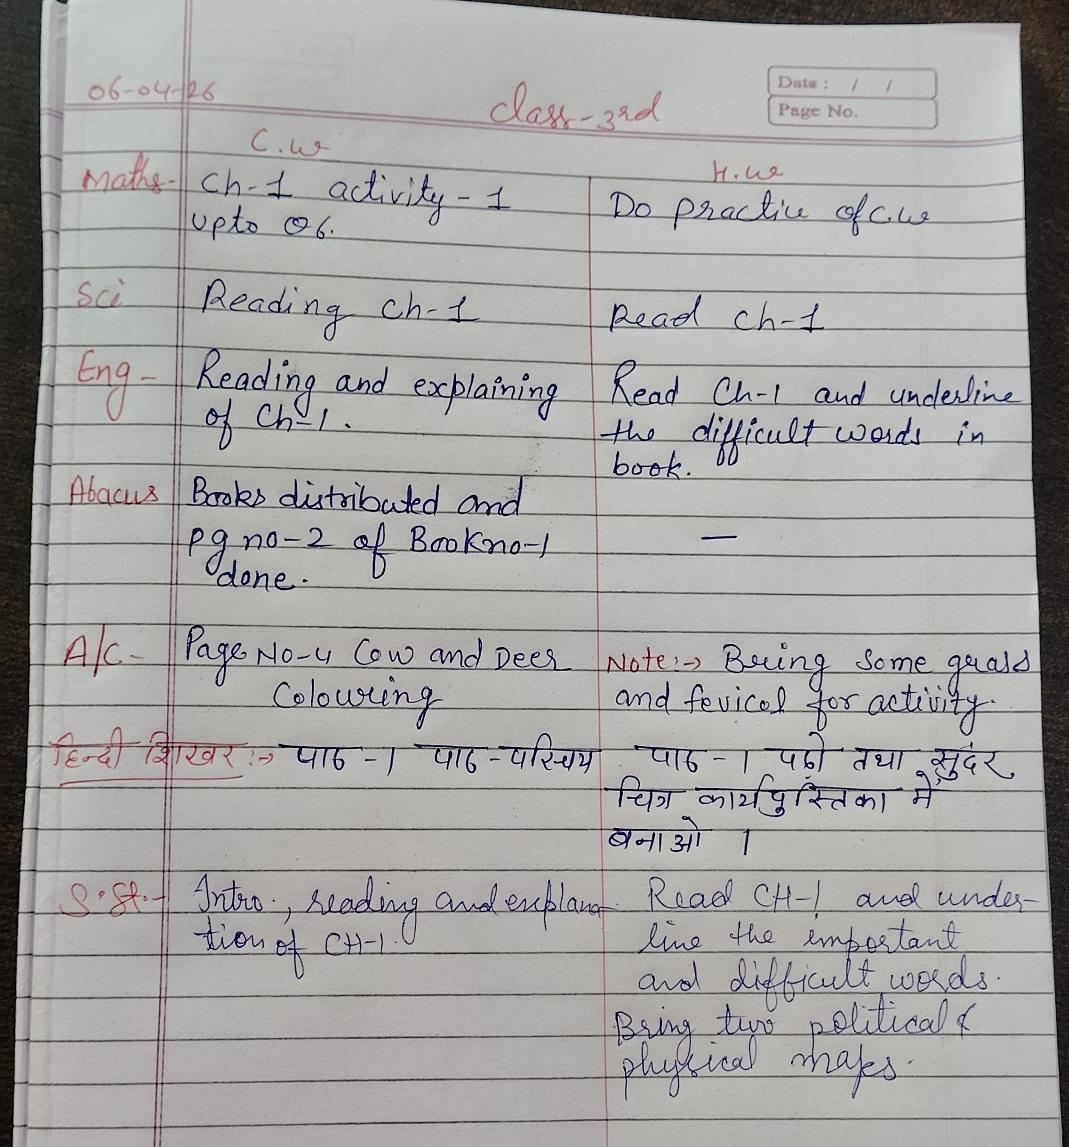 06-04-26
Class-3rd
Date : / /
Page No.
C.w
H.w
Maths- Ch-1 activity-1
upto 06.
Do practice of c.w
Sci Reading ch-1
Read ch-1
Eng- Reading and explaining
of Ch-1.
Read Ch-1 and underline
the difficult words in
book.
Abacus Books distributed and
pg no-2 of Book no-1
done.
—
A/C- Page No-4 Cow and Deer
Colouring
Note:→ Bring some grass
and fevicol for activity.
हिन्दी शिखर:→ पाठ-1 पाठ-परिचय
पाठ-1 पढ़ो तथा सुंदर
चित्र कार्यपुस्तिका में
बनाओ ।
S.St.- Intro., reading and explana
tion of CH-1.
Read CH-1 and under-
line the important
and difficult words.
Bring two political &
physical maps.